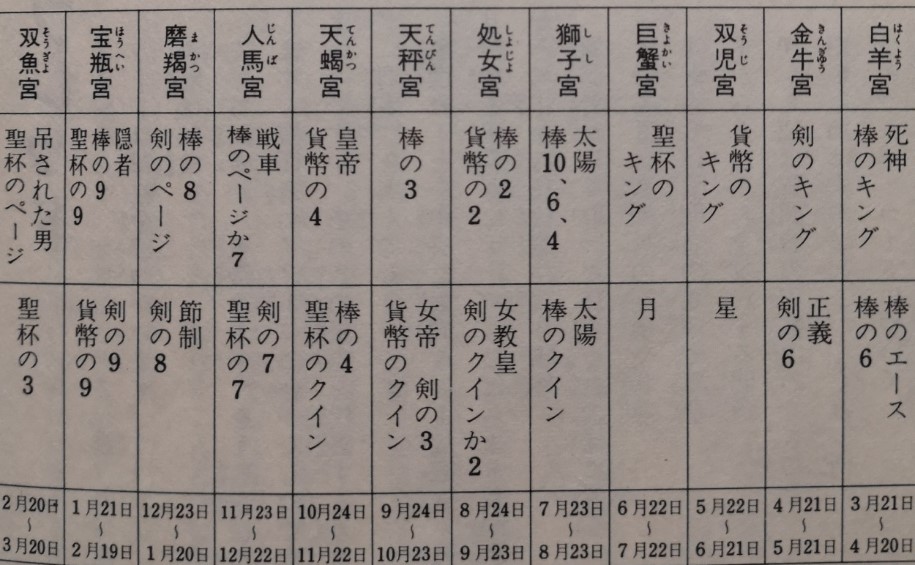 白羊宮
はくよう
死神
棒のキング
棒のエース
棒の6
3月21日
〜
4月20日
金牛宮
きんぎゅう
剣のキング
正義
剣の6
4月21日
〜
5月21日
双児宮
そうじ
貨幣の
キング
星
5月22日
〜
6月21日
巨蟹宮
きよかい
聖杯の
キング
月
6月22日
〜
7月22日
獅子宮
しし
太陽
棒10、6、4
太陽
棒のクイン
7月23日
〜
8月23日
処女宮
しょじょ
棒の2
貨幣の2
女教皇
剣のクインか2
8月24日
〜
9月23日
天秤宮
てんびん
棒の3
女帝 剣の3
貨幣のクイン
9月24日
〜
10月23日
天蝎宮
てんかつ
皇帝
貨幣の4
棒の4
聖杯のクイン
10月24日
〜
11月22日
人馬宮
じんば
戦車
棒のページか7
剣の7
聖杯の7
11月23日
〜
12月22日
磨羯宮
まかつ
棒の8
剣のページ
節制
剣の8
12月23日
〜
1月20日
宝瓶宮
ほうへい
隠者
棒の9
聖杯の9
剣の9
貨幣の9
1月21日
〜
2月19日
双魚宮
そうぎょ
吊された男
聖杯のページ
聖杯の3
2月20日
〜
3月20日